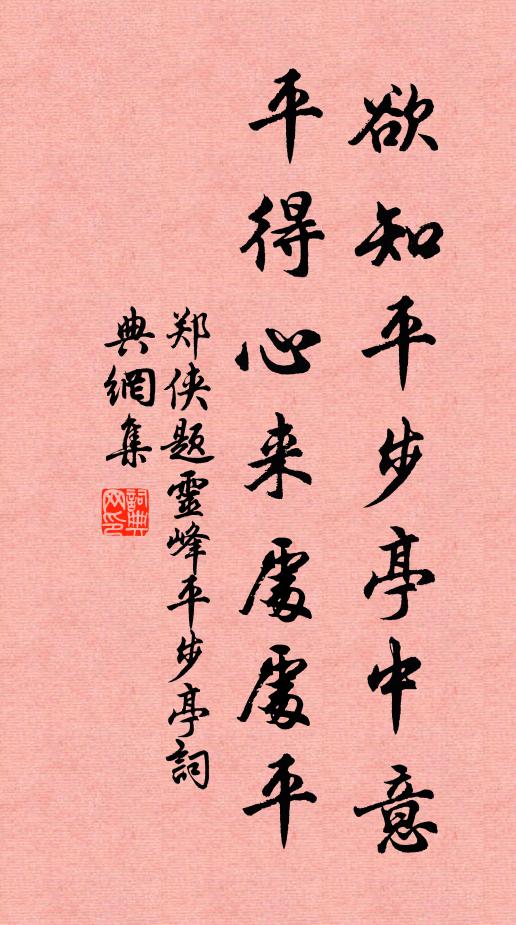 欲知平步亭中意
平得心来處處平
郑侠题靈峰平步亭詞
典網集
詞典网印